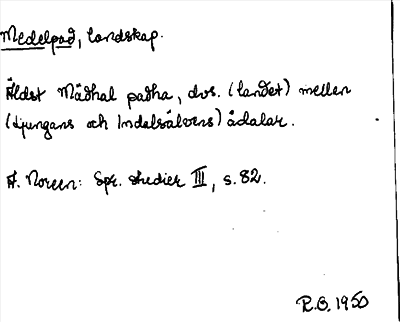 Medelpad, landskap.
Äldst Mäðhal paðha, dvs. (landet) mellen
(Ljungans och Indalsälvens) ådalar.
A. Noreen: Spr. studier III, s. 82.
R.O. 1950